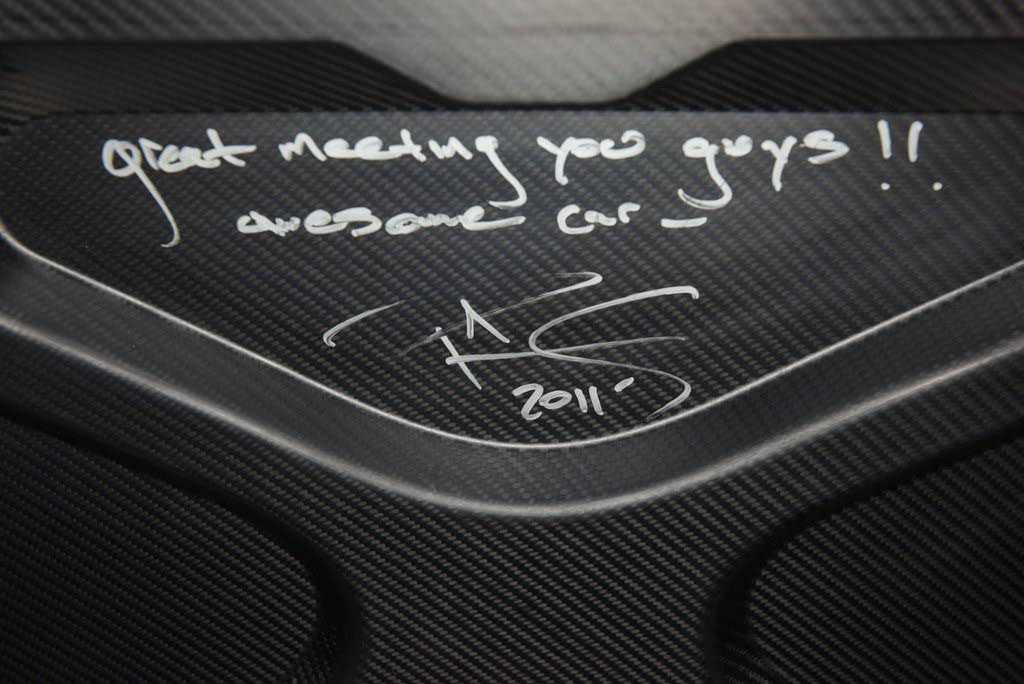 great meeting you guys !!
awesome car –
2011-